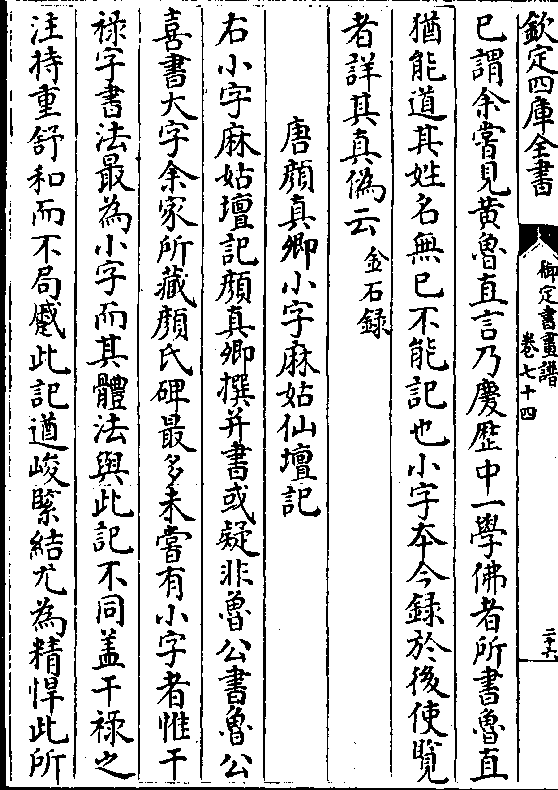 欽定四庫全書
御定書畫譜
卷七十四
二十六
已謂余嘗見黄魯直言乃慶歴中一學佛者所書魯直
猶能道其姓名無已不能記也小字本今録於後使覽
者詳其真偽云金石録
唐顔真卿小字麻姑仙壇記
右小字麻姑壇記顔真卿撰并書或疑非魯公書魯公
喜書大字余家所藏顔氏碑最多未嘗有小字者惟干
禄字書法最為小字而其體法與此記不同盖干禄之
注持重舒和而不局蹙此記遒峻緊結尤為精悍此所